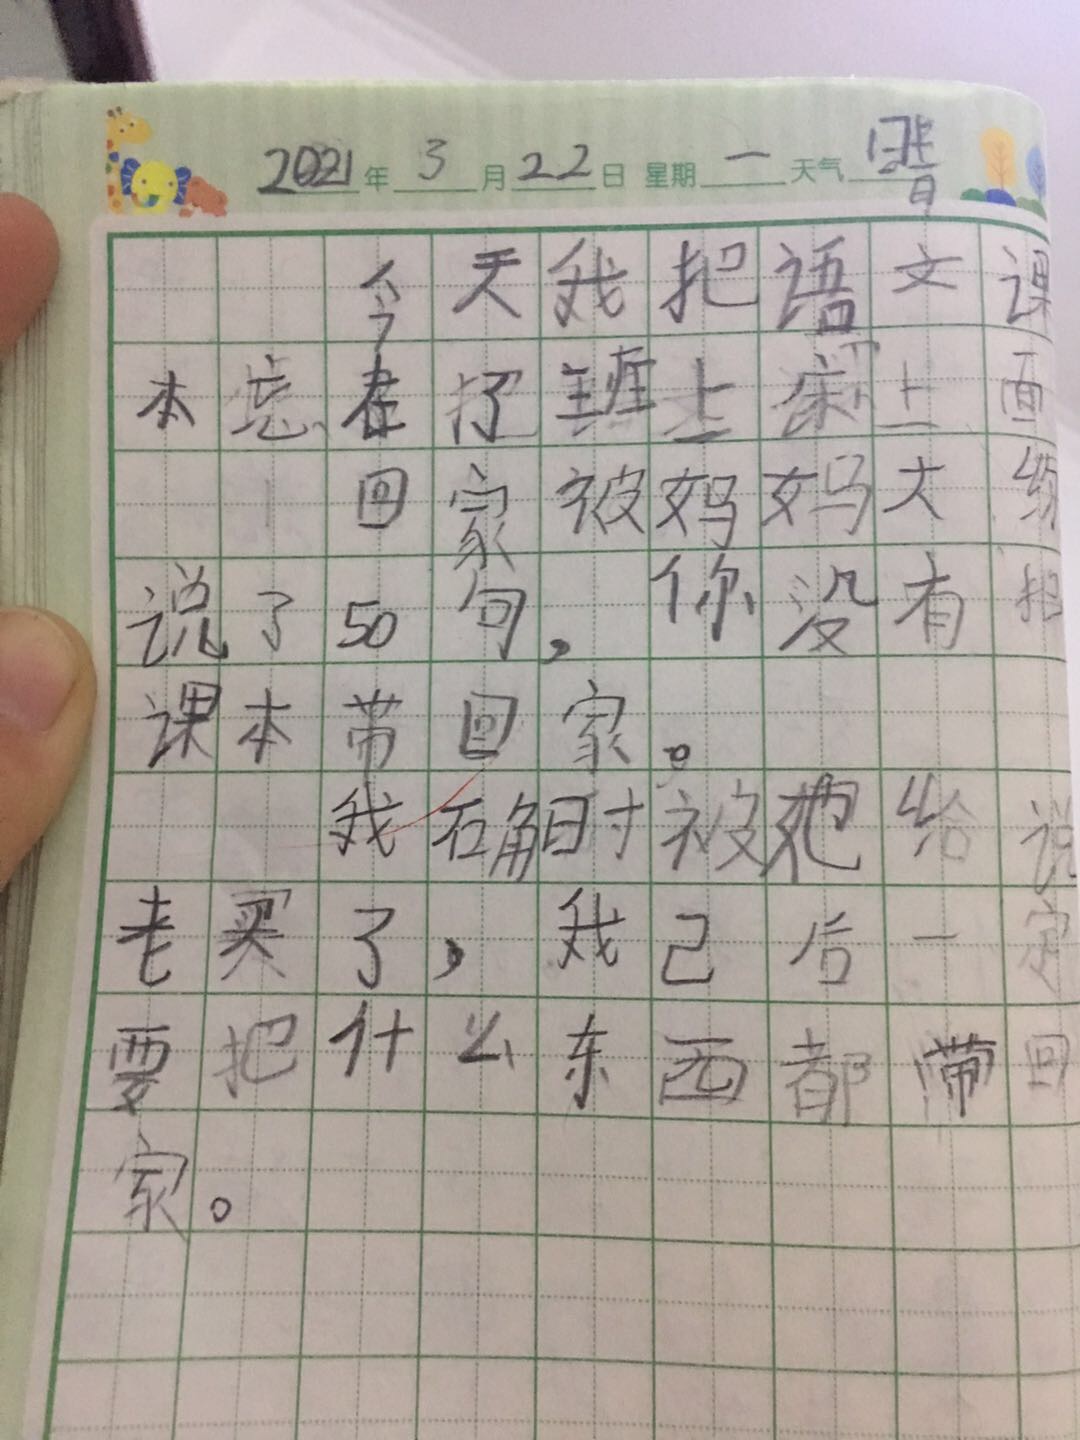 2021年3月22日 星期一 天气晴
今天我把语文课
本忘在了上床上面
回家被妈妈大
说了50句，你没有把
课本带回家。
我石角时被她给说
老买了，我己后一定
要把什么东西都带回
家。